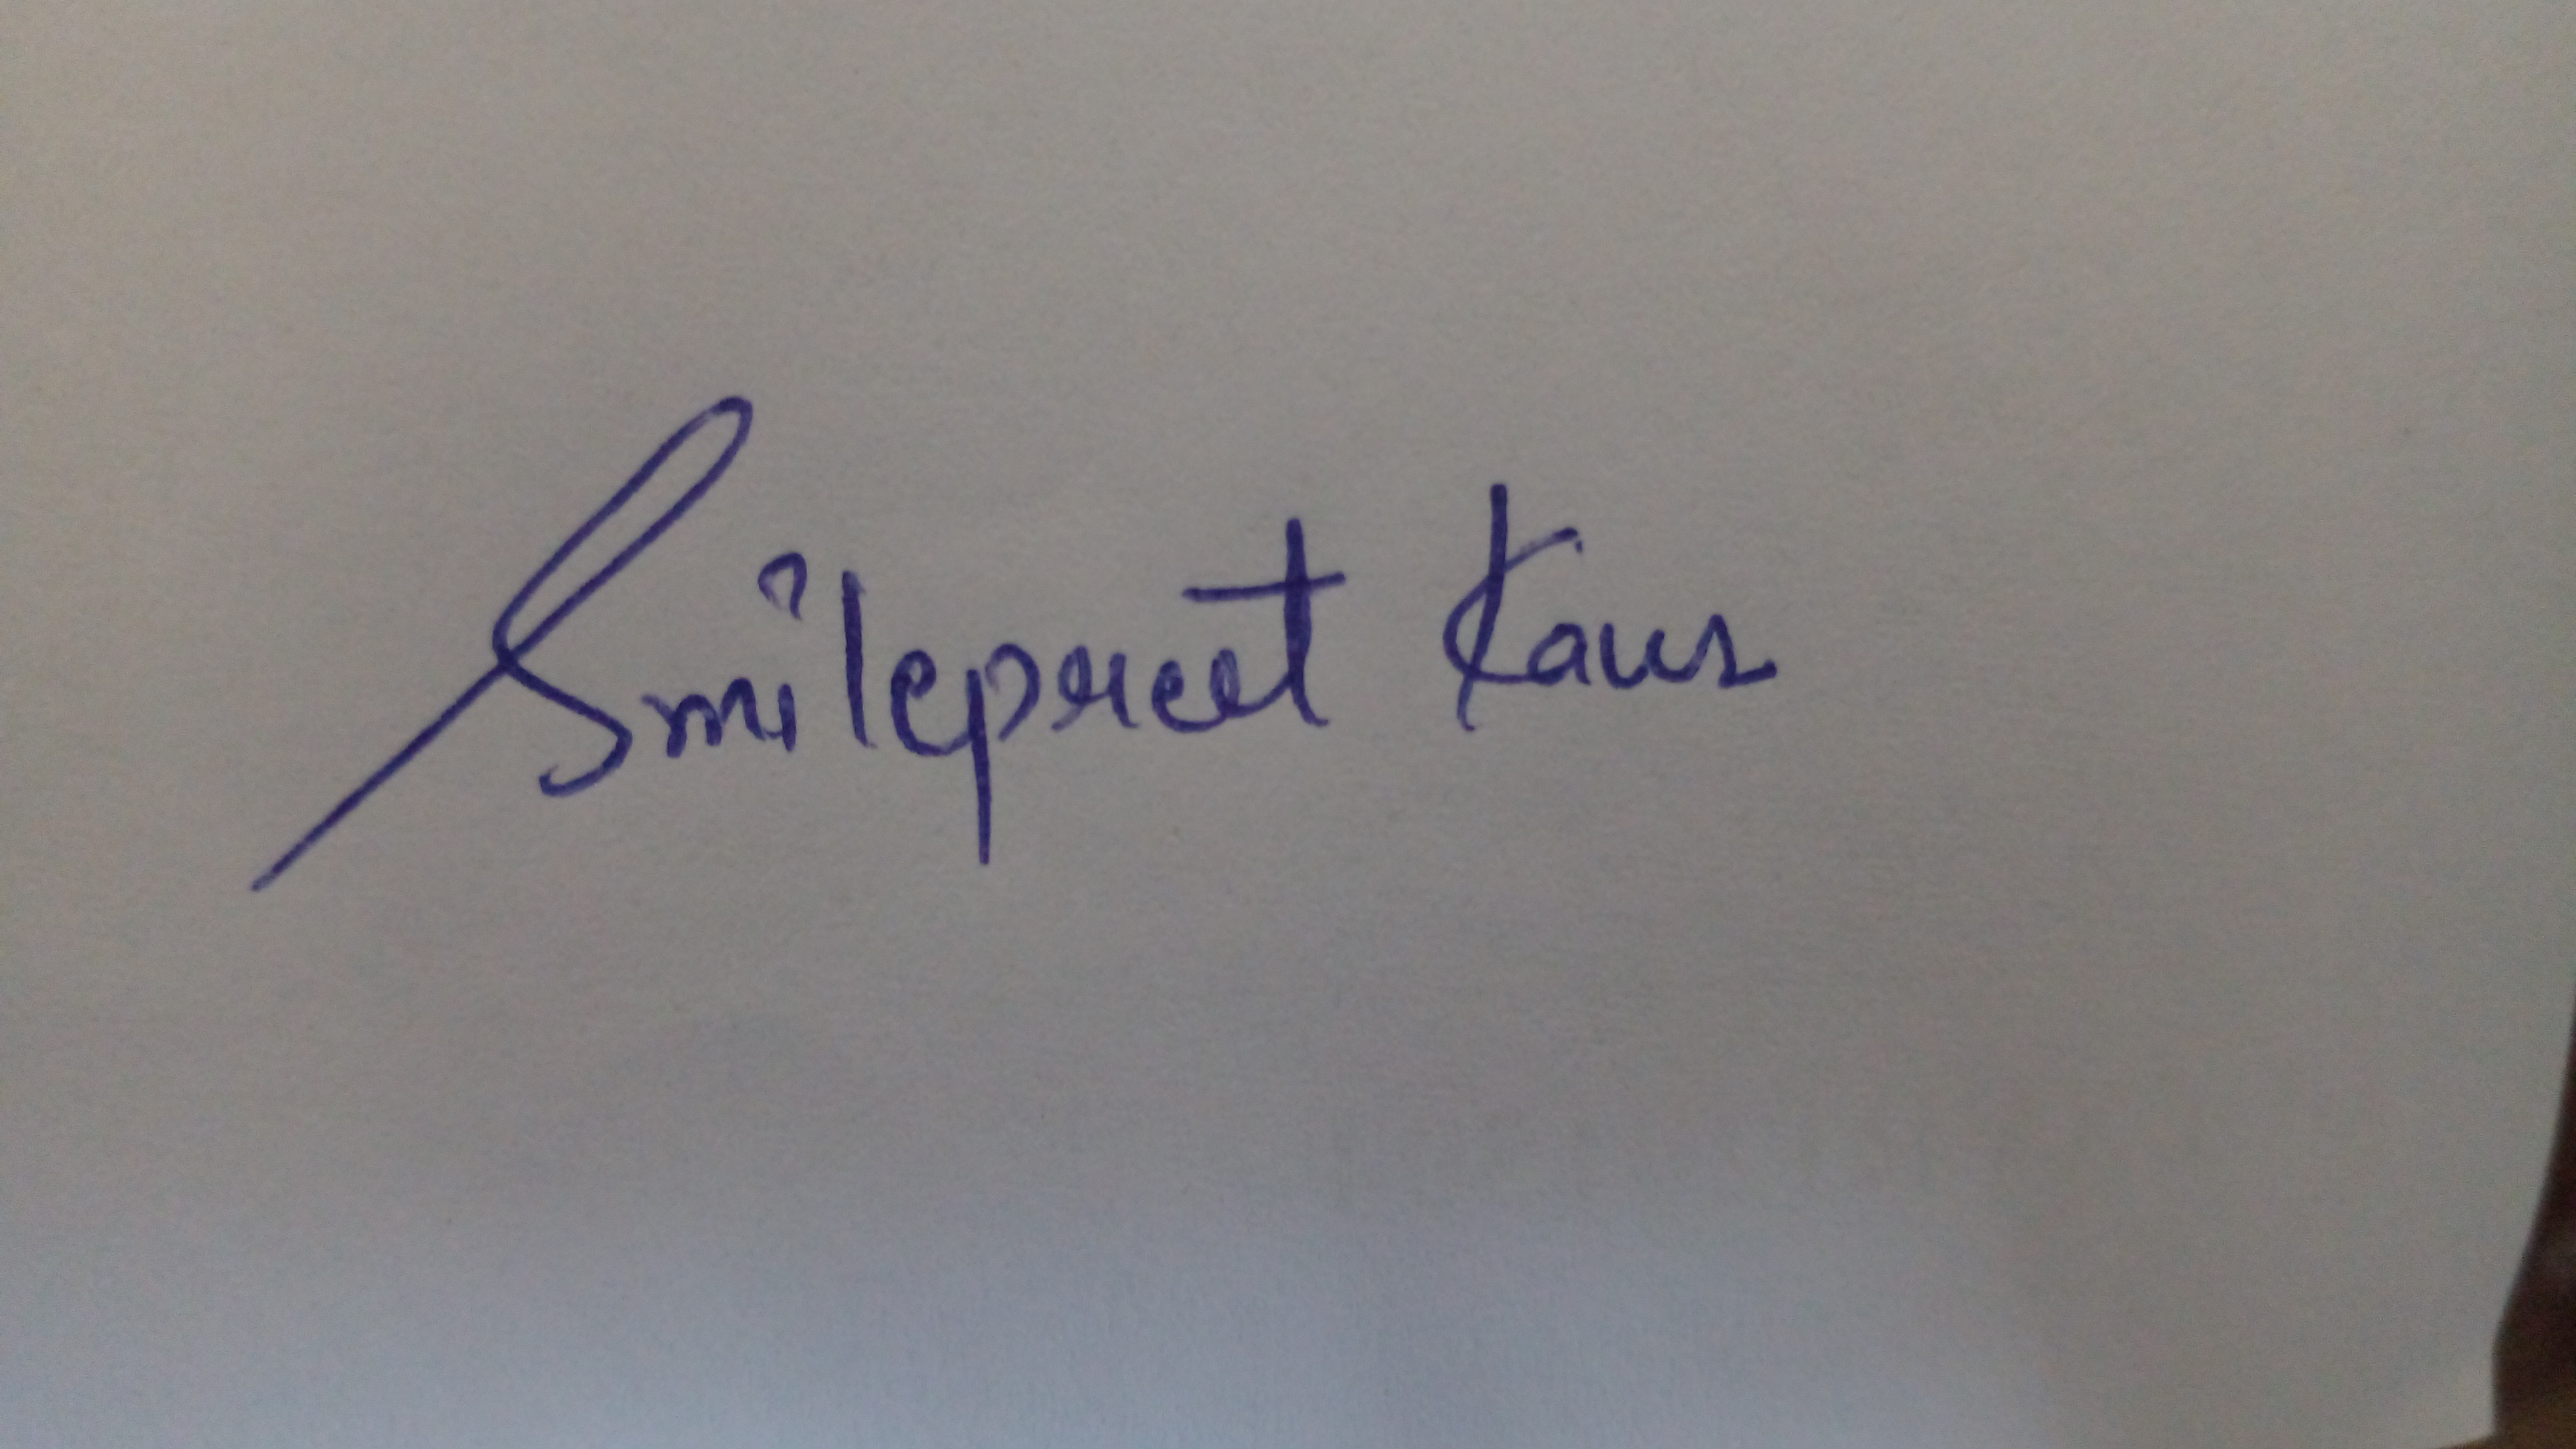 Smilepreet Kaur